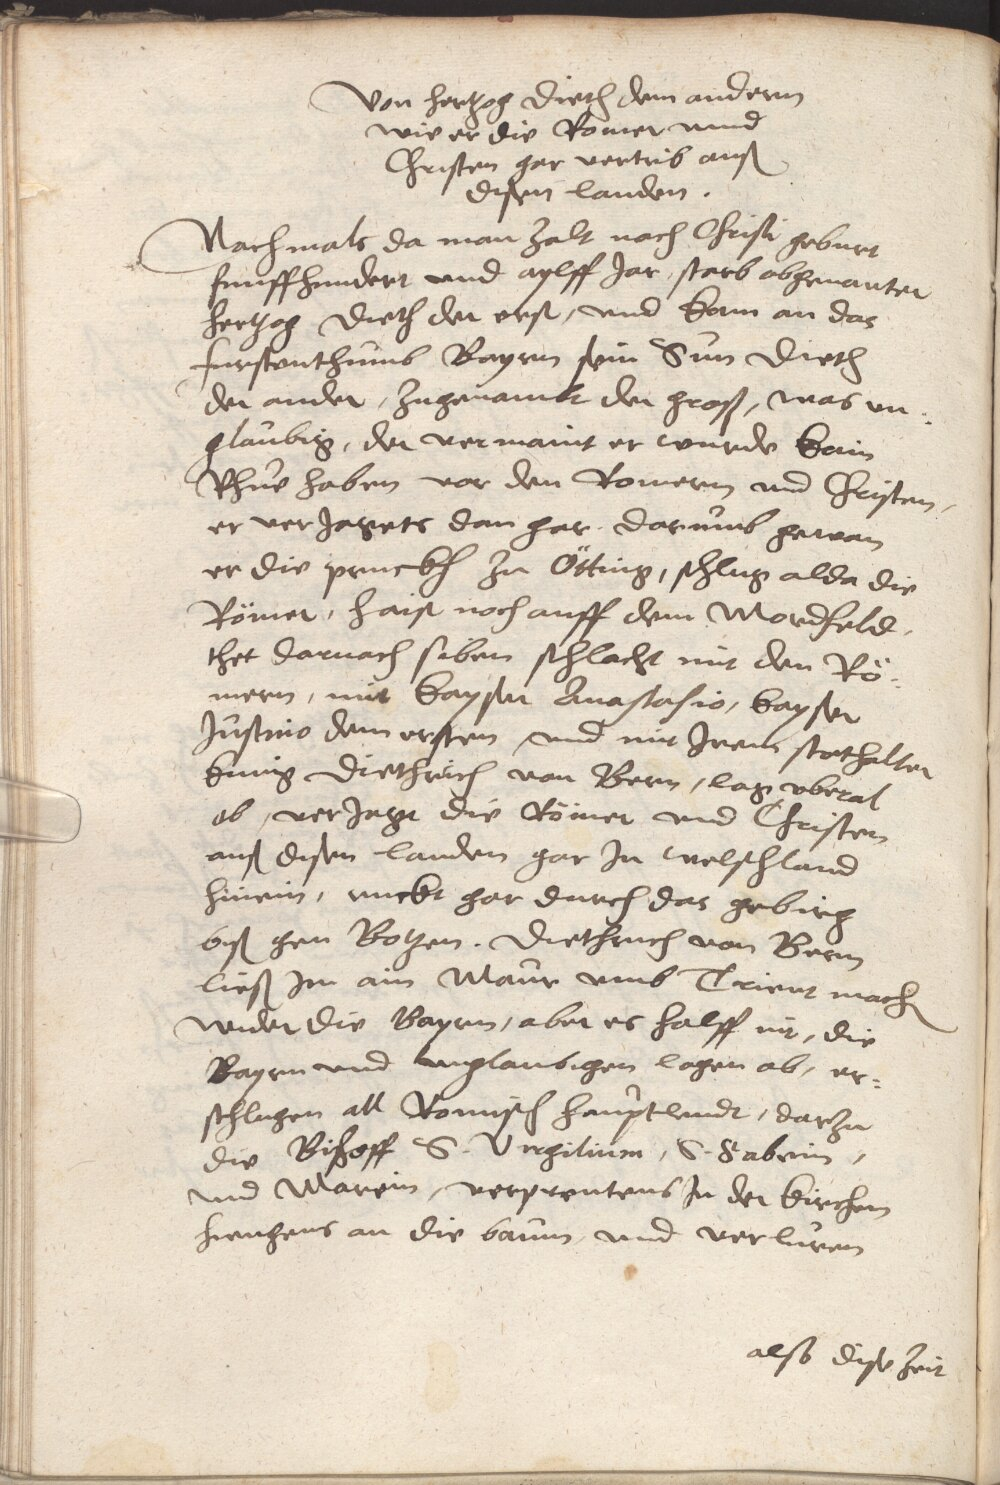 Von hertzog Dieth dem andern
wie er die Römer vnnd
Christen gar vertrib auß
disen landen.
Nachmals da man zalt nach Christi geburt
funffhundert vnnd aylff Jar, starb obgenanter
hertzog Dieth der erst, vnnd kam an das
furstenthumb Bayrn sein Sun Dieth
der ander, zugenannt der groß, was vn-
glaubig, der vermaint er wurde kain
Rhue haben vor den Romern vnd Christen,
er verjagets dan gar. darumb gewan
er die pruckh zu Ötting, schlug alda die
Römer, haist noch auff dem Mordfeld,
thet darnach siben schlacht mit den Rö-
mern, mit kayser Anastasio, kayser
Justino dem ersten vnd mit Jrem stathalter
kunig Diethrich von Bern, lag vberal
ob, verjagt die Römer vnd Christen
auß disen landen gar Jn welschland
hinein, ruckt gar durch das gebirg
biß gen Botzen. Diethrich von Bern
ließ Jm ain Maur vmb Trient mach
wider die Bayrn, aber es halff nit, die
Bayrn vnnd vnglaubigen lagen ob, er-
schlugen all Romisch hauptleudt, darzu
die Bischoff S. Virgilium, S. Fabrim,
vnd Marein, verprentens Jn der kirchen
hiengens an die baum, vnnd verluren
also dise zeit